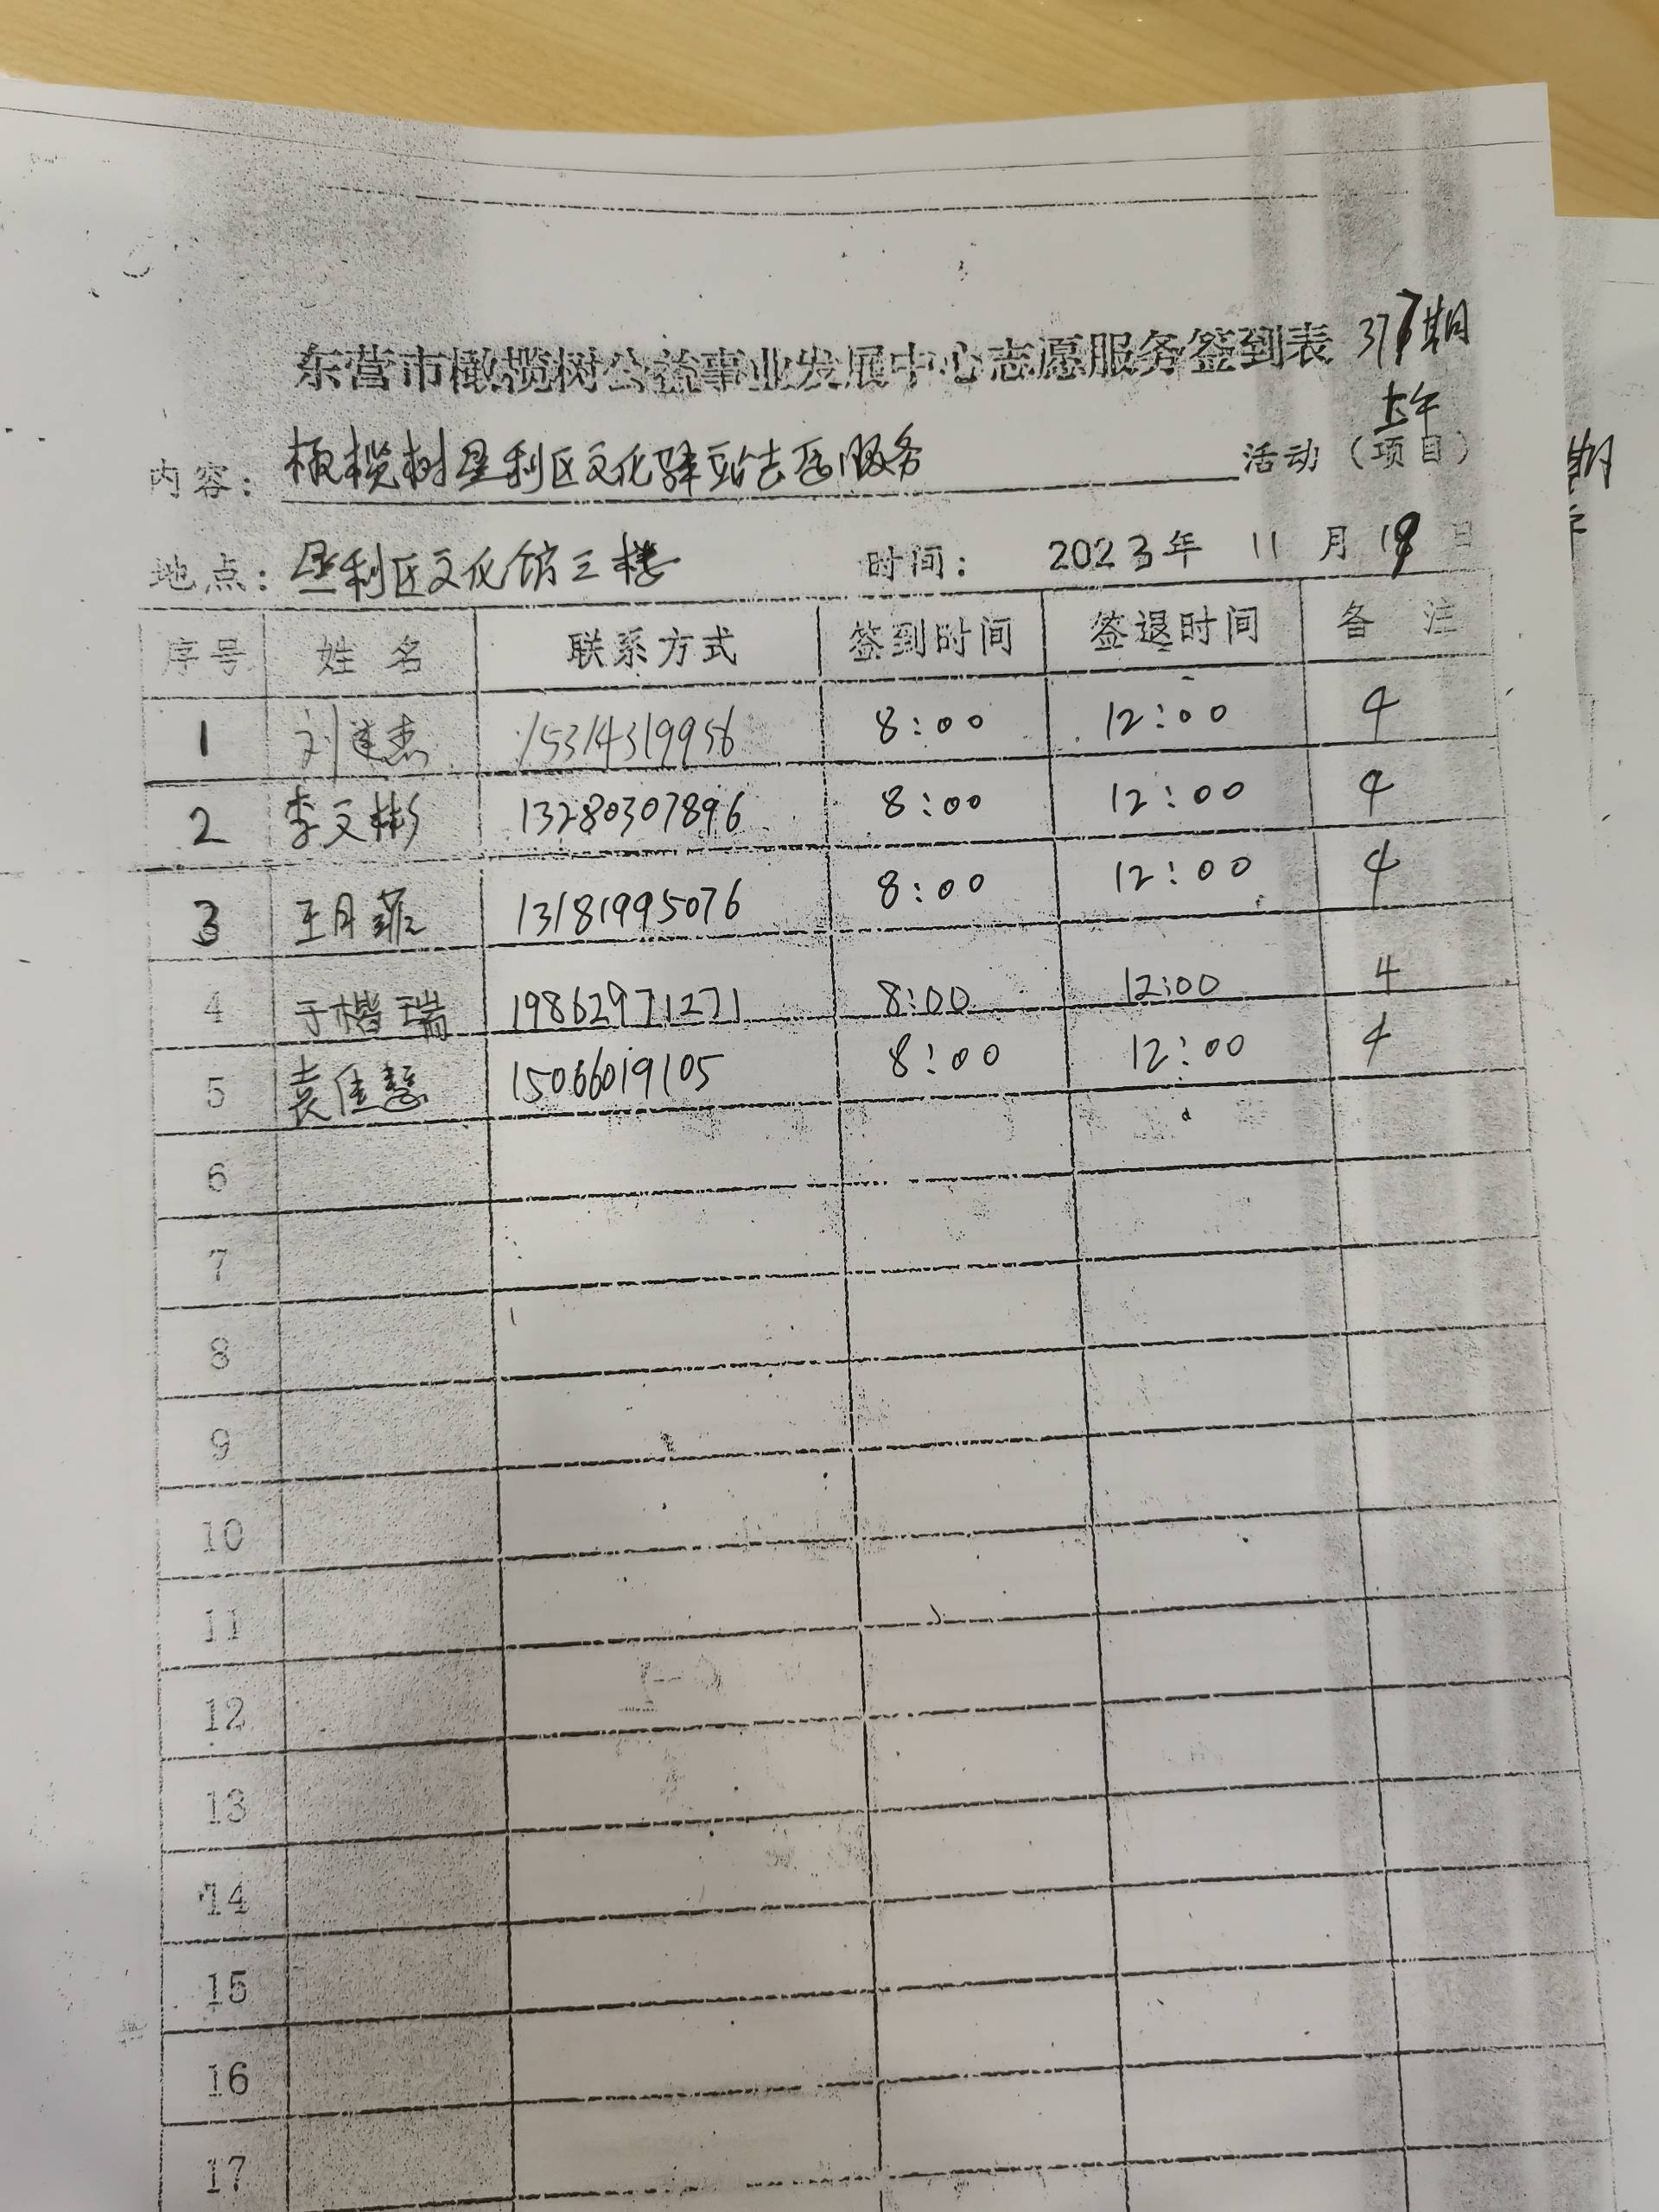 东营市橄榄树公益事业发展中心志愿服务签到表 377期
上午
内容: 橄榄树垦利区文化驿站志愿服务 活动（项目）
地点: 垦利区文化馆三楼 时间: 2023年 11 月 19 日
序号 姓 名 联系方式 签到时间 签退时间 备 注
1 刘建杰 15314319956 8:00 12:00 4
2 李文彬 13280307896 8:00 12:00 4
3 王月菲 13181995076 8:00 12:00 4
4 于楷瑞 19862971271 8:00 12:00 4
5 袁佳慧 15066019105 8:00 12:00 4
6
7
8
9
10
11
12
13
14
15
16
17
期